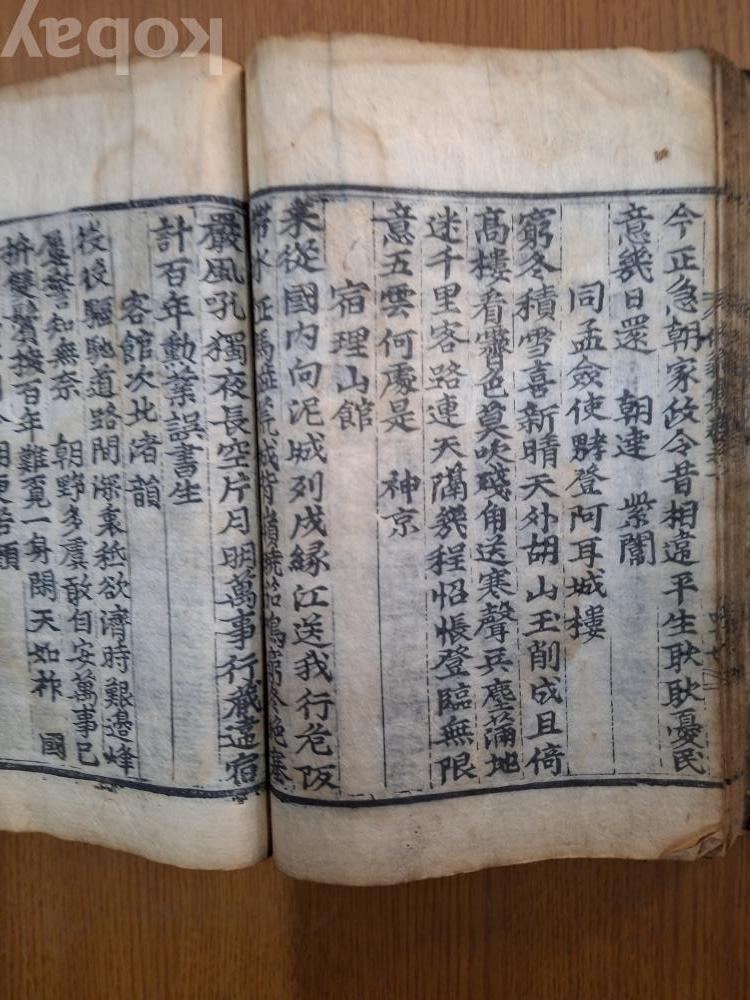 kobay
今正急朝家政令昔相違平生耿耿憂民
意幾日還 朝達 紫闥
同孟僉使登阿耳城樓
窮冬積雪喜新晴天外胡山玉削成且倚
高樓看霽色莫吹殘角送寒聲兵塵蒲地
迷千里客路連天隔幾程怊悵登臨無限
意五雲何處是 神京
宿理山館
来從國内向泥城列戍緣江送我行危阪
帶水 馬 荒城背嶺曉笳鳴窮冬絶塞
嚴風吼獨夜長空片月明萬事行藏違宿
計百年勳業誤書生
客館次北渚韻
後驅馳道路間深衷秪欲濟時艱邊烽
屢警知無奈 朝野多虞敢自安萬事已
拚雙鬢 百年難覓一身閑天如祚 國